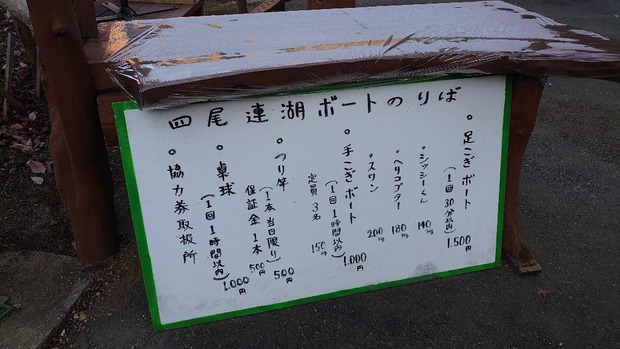 四尾連湖ボートのりば
○足こぎボート
(1回30分以内)
1,500円
○シッシーくん 140kg
○ヘリコプター 180kg
○スワン 200kg
○手こぎボート
(1回1時間以内)
1,000円
定員3名 150kg
○つり竿
(1本当日限り)
500円
保証金1本500円
○卓球
(1回1時間以内)
1,000円
○協力券取扱所